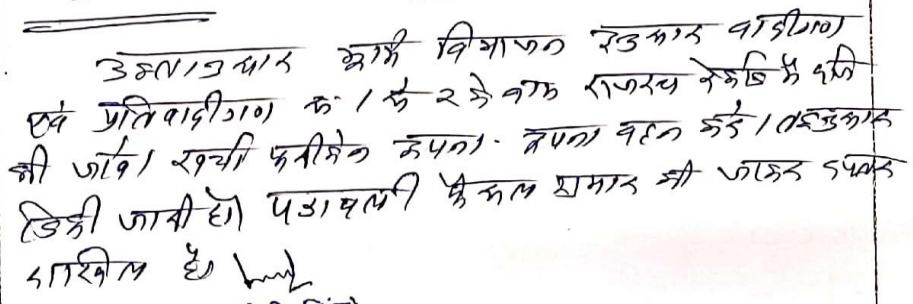 उक्तानुसार भूमि विभाजन अनुसार वादीगण
एवं प्रतिवादीगण क्रं 1 से 2 के नाम राजस्व रेकार्ड में दर्ज
की जावे। खर्चा फरीकेन अपना - अपना वहन करें। तदनुसार
डिक्री जारी हो। पत्रावली फैसल शुमार की जाकर दफ्तर
दाखिल हो